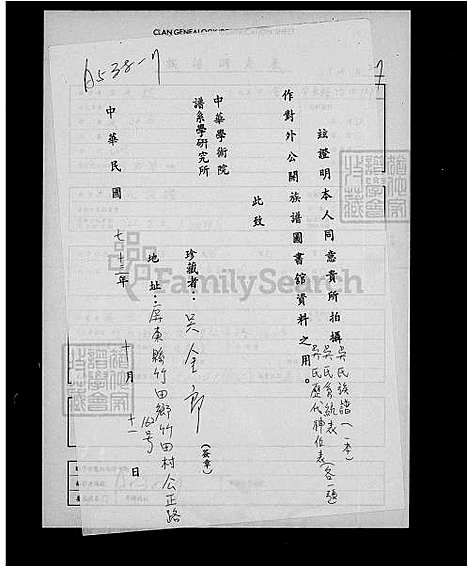 CLAN GENEALOGY
A538-7
7
茲證明本人同意貴所拍攝
吳氏族譜(一本)
吳氏系統表
吳氏歷代神位表(各一張
作對外公開族譜圖書館資料之用。
此致
中華學術院
譜系學研究所
珍藏者:吳金 (簽章)
地址:屏東縣竹田鄉竹田村公正路
162号
中華民國七十三年十月十一日
FamilySearch